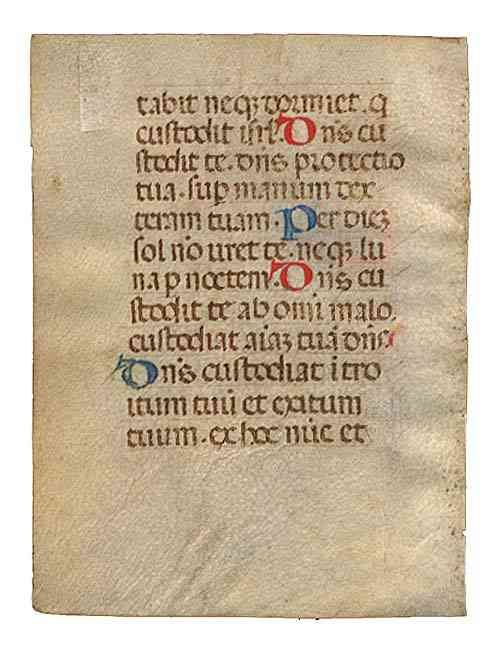 tabit neqꝫ dormiet. q
custodit isrl̓. Dn̄s cu
stodit te. dn̄s protectio
tua. suꝑ manum dex
teram tuam. Per dieꝫ
sol nō uret te. neqꝫ lu
na ꝑ noctem. Dn̄s cu
stodit te ab omī malo.
custodiat aīaꝫ tuā dn̄s.
Dn̄s custodiat ītro
itum tuū et exitum
tuum. ex hoc nūc et